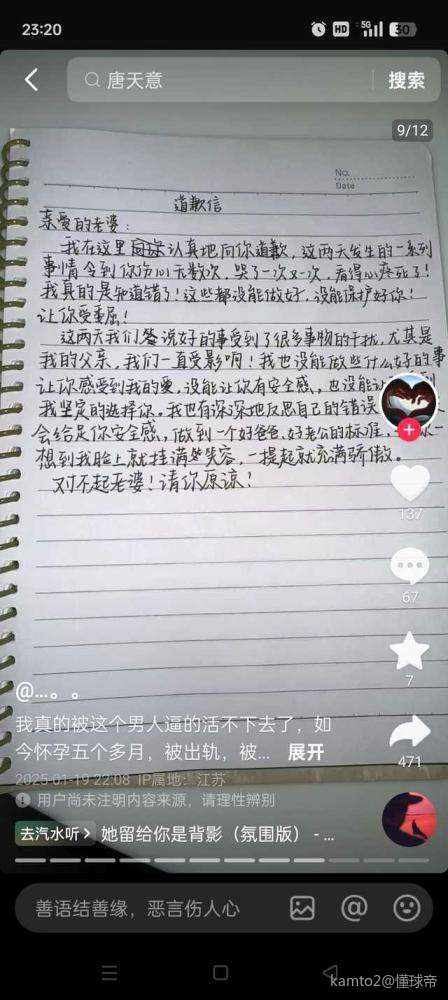 23:20
HD
5G
30
唐天意
搜索
9/12
No.
Date
道歉信
亲爱的老婆:
我在这里
认真地向你道歉,这两天发生的一系列
事情令到你伤心无数次,哭了一次又一次,看得心疼死了!
我真的是知道错了!这些都没能做好,没能保护好你!
让你受委屈!
这两天我们
说好的事受到了很多事物的干扰,尤其是
我的父亲,我们一直受影响!我也没能做些什么好的事
让你感受到我的爱,没能让你有安全感,也没能让
到
我坚定的选择你。我也有深深地反思自己的错误
会给足你安全感,做到一个好爸爸、好老公的标准,
一
想到我脸上就挂满
笑容,一提起就充满骄傲。
对不起老婆!请你原谅!
137
67
7
471
@...。。
我真的被这个男人逼的活不下去了,如
今怀孕五个多月,被出轨,被... 展开
2025-01-19 22:08 IP属地:江苏
用户尚未注明内容来源,请理性辨别
去汽水听 > 她留给你是背影(氛围版) - ...
善语结善缘,恶言伤人心
kamto2@懂球帝